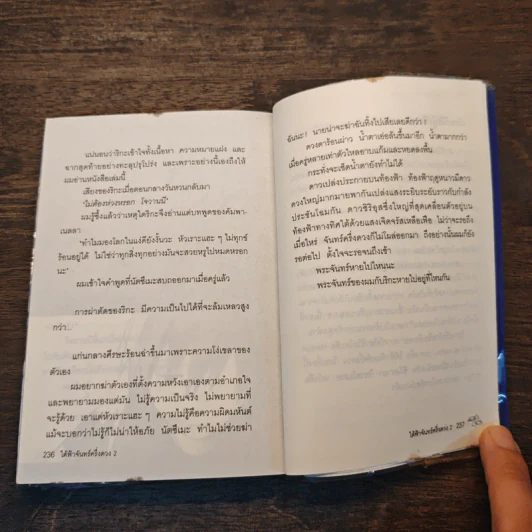 แน่นอนว่าริกะเข้าใจทั้งเนื้อหา ความหมายแฝง และ
ฉากสุดท้ายอย่างทะลุปรุโปร่ง และเพราะอย่างนี้เองถึงให้
ผมอ่านหนังสือเล่มนี้
เสียงของริกะเมื่อตอนกลางวันหวนกลับมา
'ไม่ต้องห่วงหรอก โจวานนี'
ผมรู้ซึ้งแล้วว่าเหตุใดริกะจึงอ่านแต่บทพูดของคัมพา-
เนลลา
'ทำไมมองโลกในแง่ดียังงั้นวะ หัวเราะแฮะ ๆ ไม่ทุกข์
ร้อนอยู่ได้ ไม่ใช่ว่าทุกสิ่งทุกอย่างมันจะสวยหรูไปหมดหรอก
นะ'
ผมเข้าใจคำพูดที่นัตซึเมะสบถออกมาเมื่อครู่แล้ว
การผ่าตัดของริกะ มีความเป็นไปได้ที่จะล้มเหลวสูง
กว่า...
แก่นกลางศีรษะร้อนฉ่าขึ้นมาเพราะความโง่เขลาของ
ตัวเอง
ผมอยากฆ่าตัวเองที่ตั้งความหวังเอาเองตามอำเภอใจ
และพยายามมองแต่มัน ไม่รู้ความเป็นจริง ไม่พยายามที่
จะรู้ด้วย เอาแต่หัวเราะแฮะ ๆ ความไม่รู้คือความผิดมหันต์
แม้จะบอกว่าไม่รู้ก็ไม่น่าให้อภัย นัตซึเมะ ทำไมไม่ช่วยฆ่า
236 ใต้ฟ้าจันทร์ครึ่งดวง 2
ฉันนะ! นายน่าจะฆ่าฉันทิ้งไปเสียเลยดีกว่า!
ดวงตาร้อนผ่าว น้ำตาเอ่อล้นขึ้นมาอีก น้ำตามากกว่า
เมื่อครู่หลายเท่าตัวไหลอาบแก้มและหยดลงพื้น
กระทั่งจะเช็ดน้ำตายังทำไม่ได้
ดาวเปล่งประกายบนท้องฟ้า ท้องฟ้าฤดูหนาวมีดาว
ดวงใหญ่มากมายพากันเปล่งแสงระยิบระยับราวกับกำลัง
ประชันโฉมกัน ดาวซิริอุสซึ่งใหญ่ที่สุดเคลื่อนตัวอยู่บน
ท้องฟ้าทางทิศใต้ด้วยแสงเจิดจรัสเหลือเชื่อ ไม่ว่าจะรอถึง
เมื่อไหร่ จันทร์ครึ่งดวงก็ไม่โผล่ออกมา ถึงอย่างนั้นผมก็ยัง
รอต่อไป ตั้งใจจะรอจนถึงเช้า
พระจันทร์หายไปไหนนะ
พระจันทร์ของผมกับริกะหายไปอยู่ที่ไหนกัน
ใต้ฟ้าจันทร์ครึ่งดวง 2 237